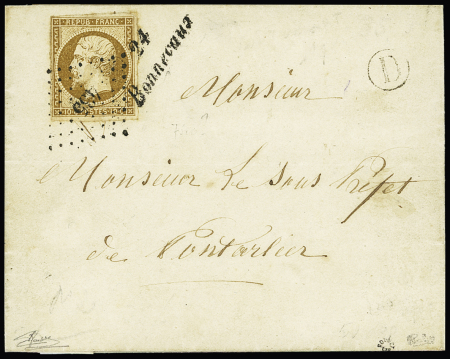 REPUB. FRANC.
24
Bonnevaux
D
Monsieur
Monsieur Le Sous Préfet
de Pontarlier